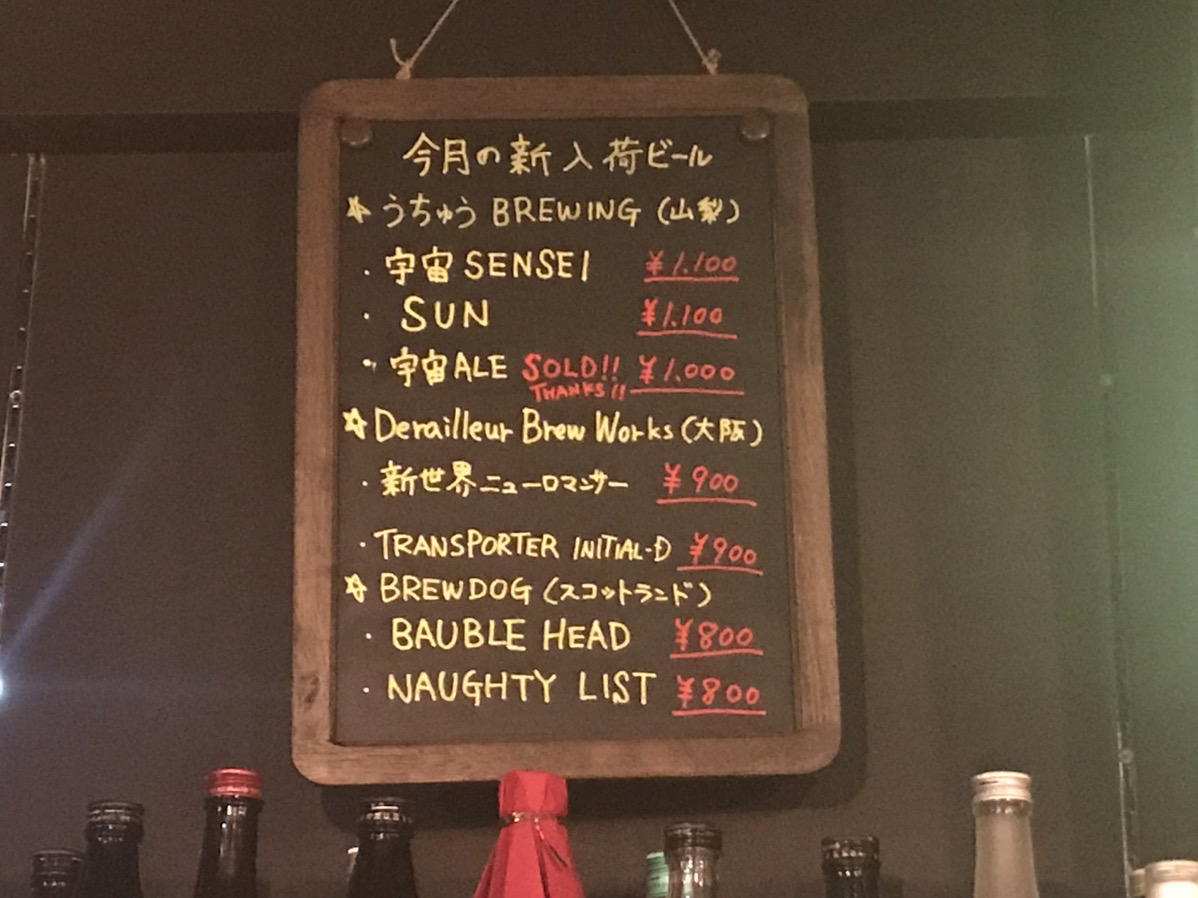 今月の新入荷ビール
☆ うちゅう BREWING (山梨)
・宇宙 SENSEI ¥1.100
・SUN ¥1.100
・宇宙ALE SOLD!! THANKS!! ¥1.000
☆ Derailleur Brew Works (大阪)
・新世界ニューロマンサー ¥900
・TRANSPORTER INITIAL-D ¥900
☆ BREWDOG (スコットランド)
・BAUBLE HEAD ¥800
・NAUGHTY LIST ¥800